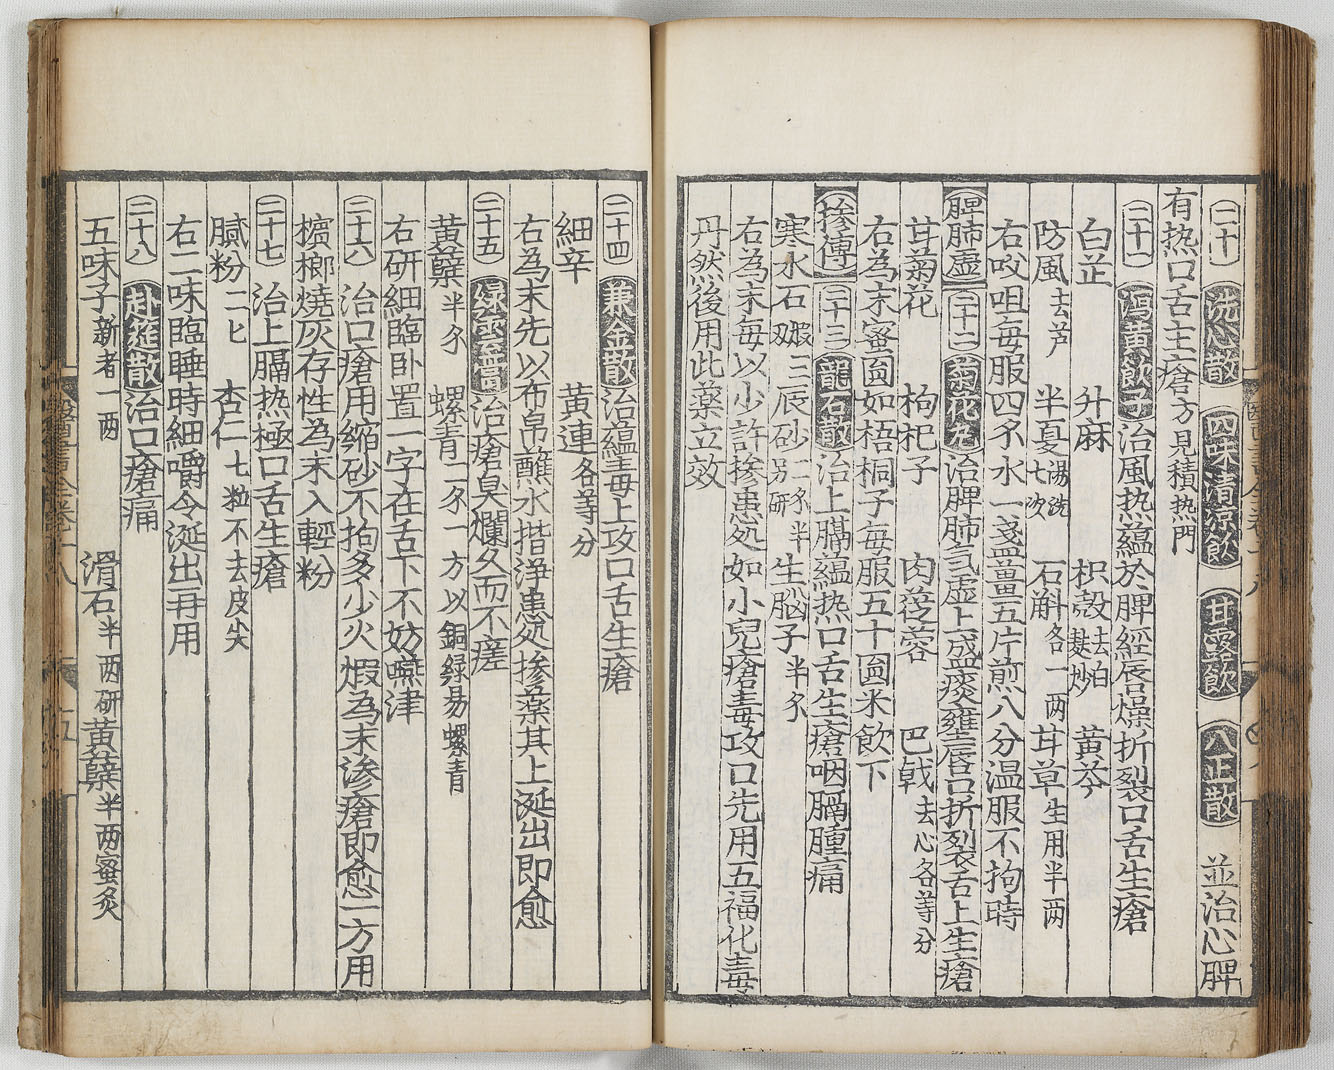 (二十) 洗心散 四味清凉飲 甘露飲 八正散 並治心脾
有热口舌主瘡方見積热門
(二十一) 瀉黄飲子 治風热蕴於脾經唇燥折裂口舌生瘡
白芷 升麻 枳殼去白麸炒 黄芩
防風去芦 半夏湯洗七次 石斛各一两 甘草生用半两
右㕮咀每服四夕水一盞薑五片煎八分温服不拘時
脾肺虚 (二十二) 菊花丸 治脾肺氣虚上盛痰壅唇口折裂舌上生瘡
甘菊花 枸杞子 肉蓯蓉 巴戟去心各等分
右為末蜜圎如梧桐子每服五十圎米飲下
掺傅 (二十三) 龍石散 治上膈蕴热口舌生瘡咽膈腫痛
寒水石煆三双 辰砂一夕半另研 生脳子半夕
右為末每以少許掺患処如小兒瘡毒攻口先用五福化毒
丹然後用此薬立效
(二十四) 兼金散 治蕴毒上攻口舌生瘡
細辛 黄連各等分
右為末先以布帛蘸水揩浄患処掺薬其上涎出即愈
(二十五) 緑雲膏 治瘡臭爛久而不瘥
黄蘗半夕 螺青二夕一方以銅緑易螺青
右研細臨卧置一字在舌下不妨嚥津
(二十六) 治口瘡用缩砂不拘多少火煆為末渗瘡即愈一方用
檳榔燒灰存性為末入輕粉
(二十七) 治上膈热極口舌生瘡
膩粉一匕 杏仁七粒不去皮尖
右二味臨睡時細嚼令涎出再用
(二十八) 赴筵散 治口瘡痛
五味子新者一两 滑石半两研 黄蘗半两蜜炙